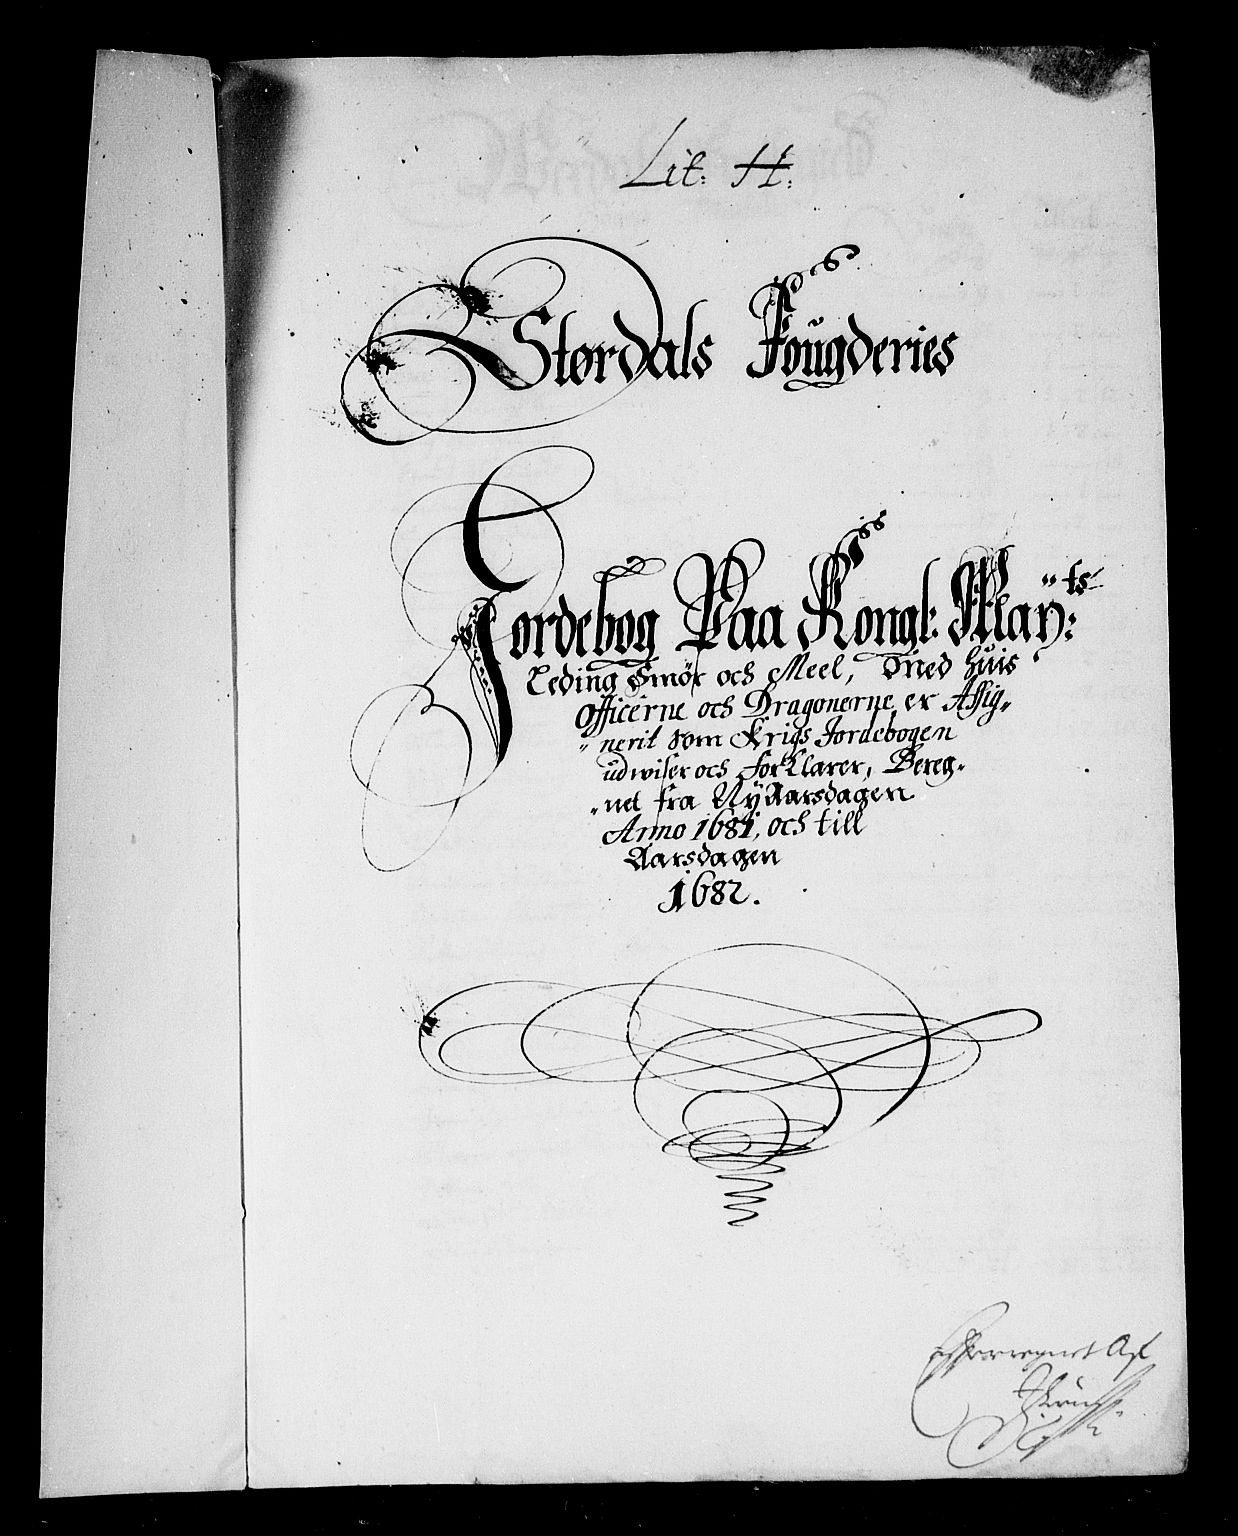 Lit: H:
Størdals Fougderies
Jordebog Paa Kongl: May:ts
Leding Smör och Meel, Med huis
Officerne och Dragonerne er Assig„
„nerit som Krigs Jordebogen
udwiser och forklarer, Bereg„
„net fra Ny Aarsdagen
Anno 1681, och till
Aarsdagen
1682.
Efterregnet Af